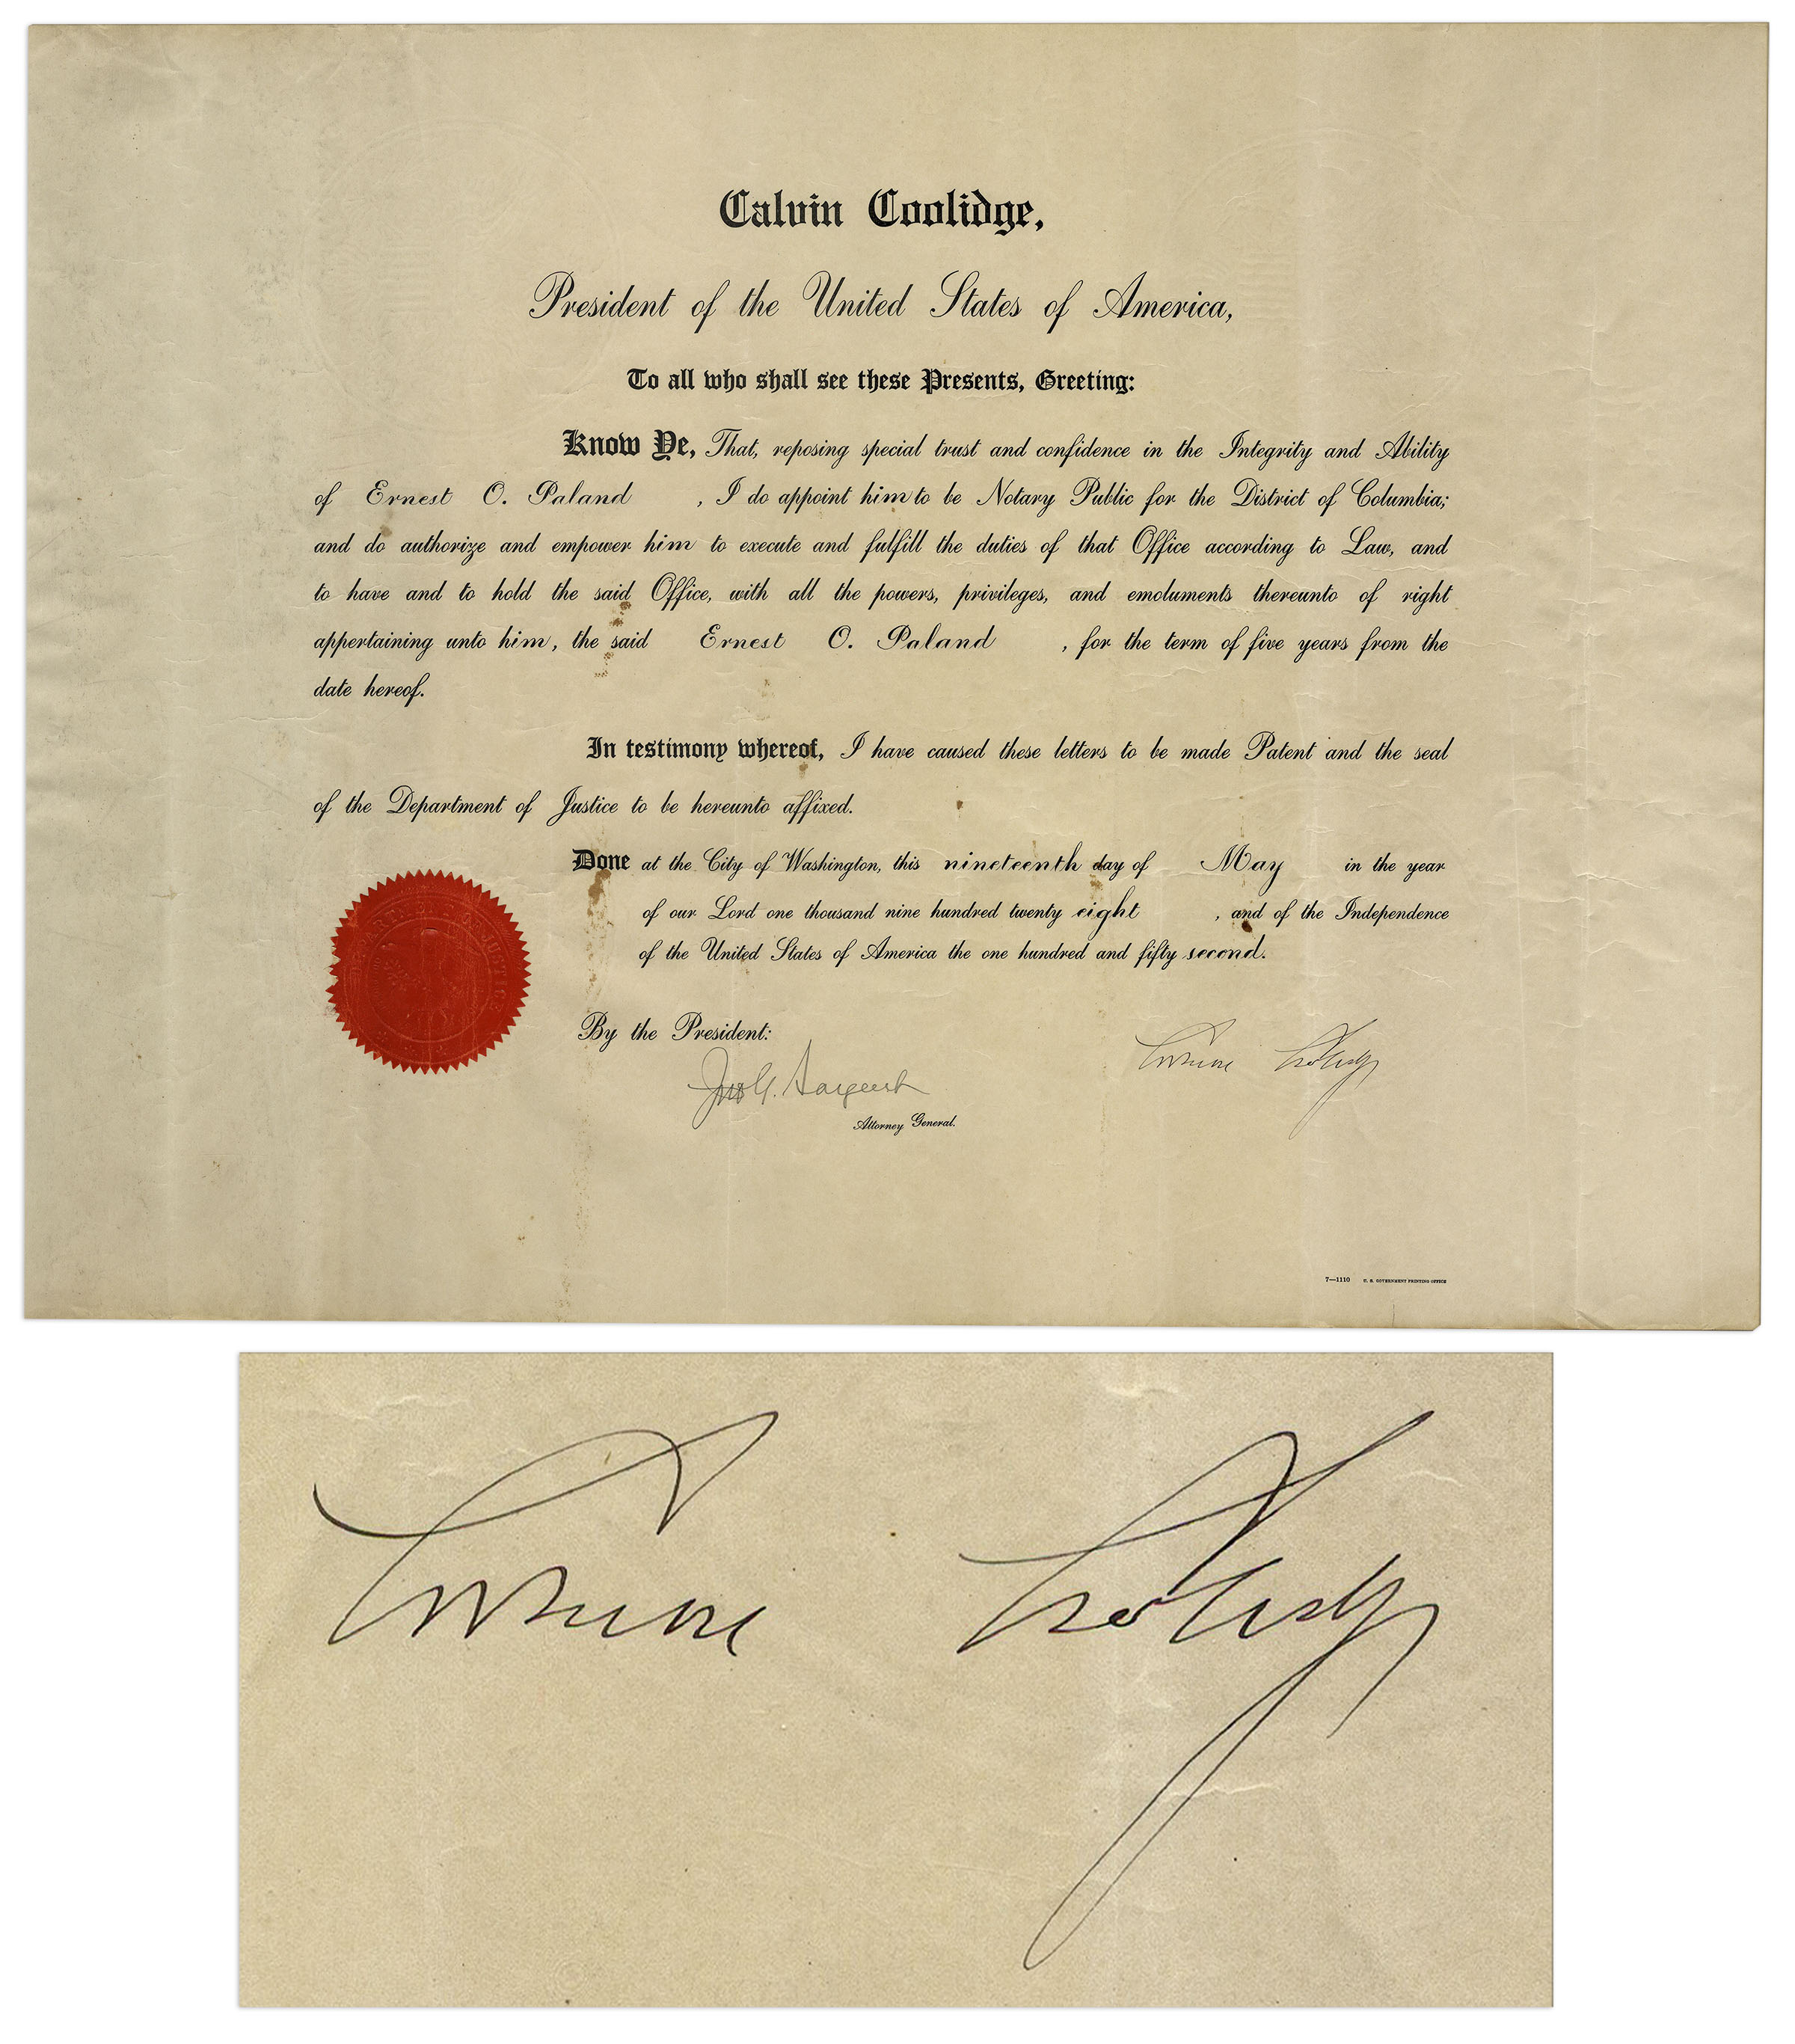 Calvin Coolidge,
President of the United States of America,
To all who shall see these Presents, Greeting:
Know Ye, That, reposing special trust and confidence in the Integrity and Ability
of Ernest O. Paland , I do appoint him to be Notary Public for the District of Columbia;
and do authorize and empower him to execute and fulfill the duties of that Office according to Law, and
to have and to hold the said Office, with all the powers, privileges, and emoluments thereunto of right
appertaining unto him, the said Ernest O. Paland , for the term of five years from the
date hereof.
In testimony whereof, I have caused these letters to be made Patent and the seal
of the Department of Justice to be hereunto affixed.
Done at the City of Washington, this nineteenth day of May in the year
of our Lord one thousand nine hundred twenty eight , and of the Independence
of the United States of America the one hundred and fifty second.
By the President:
Calvin Coolidge
Jno G. Sargent
Attorney General.
7—1110 U. S. GOVERNMENT PRINTING OFFICE
Calvin Coolidge